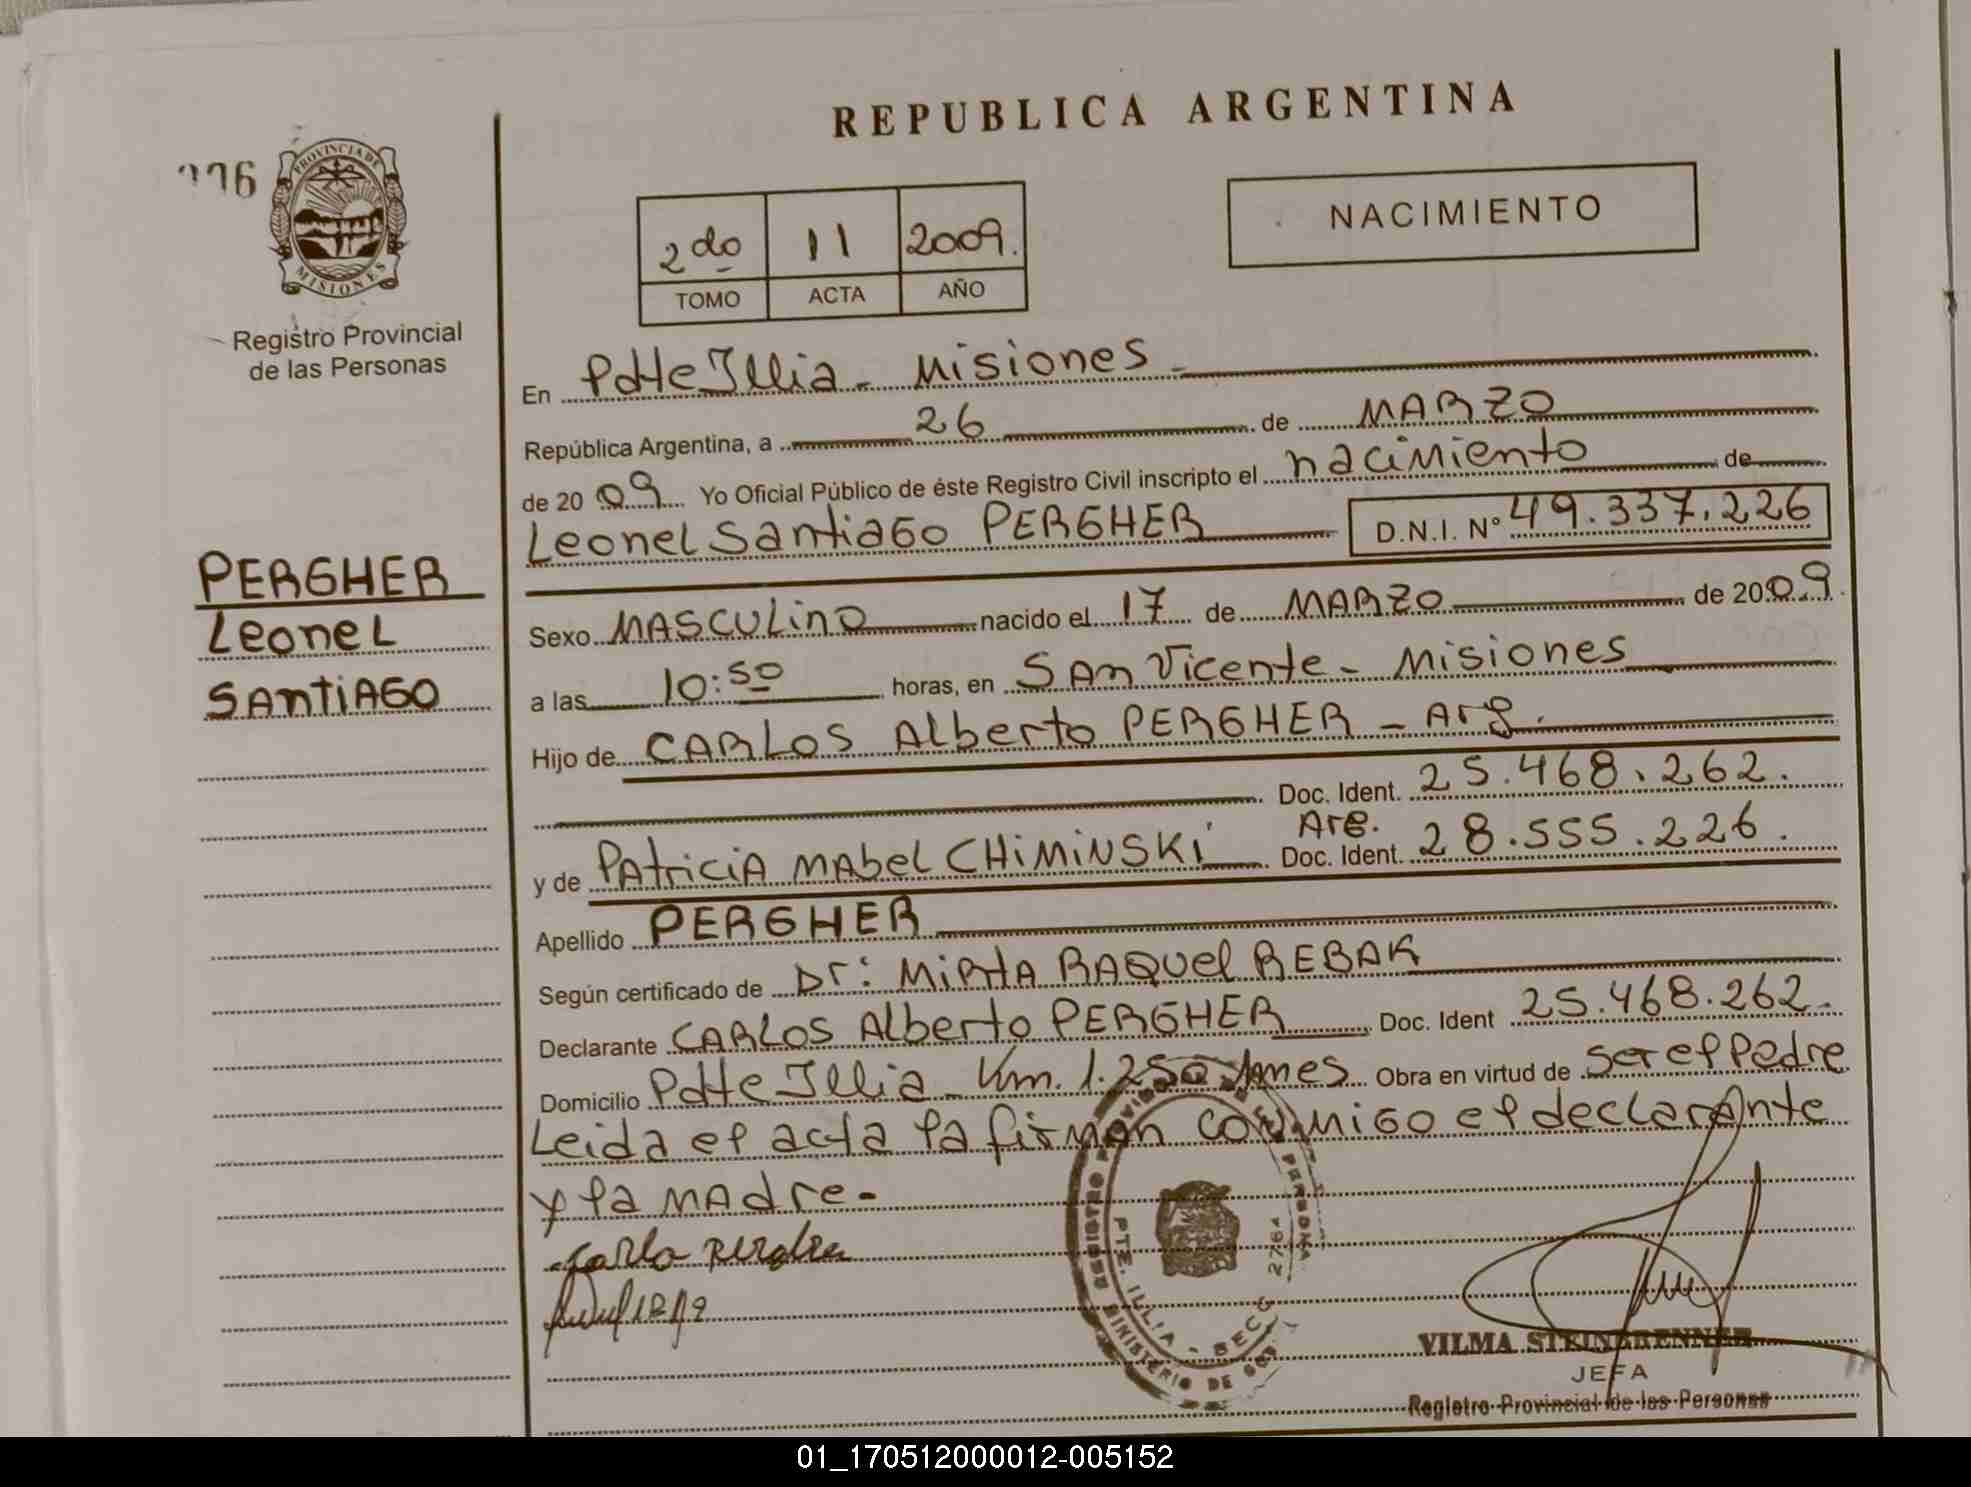 REPUBLICA ARGENTINA
PROVINCIA DE
MISIONES
Registro Provincial
de las Personas
2do 11 2009.
TOMO ACTA AÑO
NACIMIENTO
PERGHER
Leonel
SANTIAGO
En Pdte Illia - Misiones -
República Argentina, a 26 de MARZO
de 2009 Yo Oficial Público de éste Registro Civil inscripto el nacimiento de
Leonel Santiago PERGHER D.N.I. N° 49.337.226
Sexo MASCULINO nacido el 17 de MARZO de 2009.
a las 10:50 horas, en SAN Vicente - Misiones
Hijo de CARLOS Alberto PERGHER - Arg.
Doc. Ident. 25.468.262.
Arg.
y de PAtriciA MAbel CHiMiNSKi Doc. Ident. 28.555.226.
Apellido PERGHER
Según certificado de Dr: MiRtA RAQUel REBAK
Declarante CARLOS Alberto PERGHER Doc. Ident 25.468.262.
Domicilio Pdte Illia - Km. 1.250 - Mnes Obra en virtud de Ser el Padre
Leida el acta la firman conmigo el declarante
y la MAdre -
REGISTRO PROVINCIAL DE LAS PERSONAS
PTE. ILLIA - SECC 2761
MINISTERIO DE GOB.
VILMA STEINBRENNER
JEFA
Registro Provincial de las Personas
01_170512000012-005152